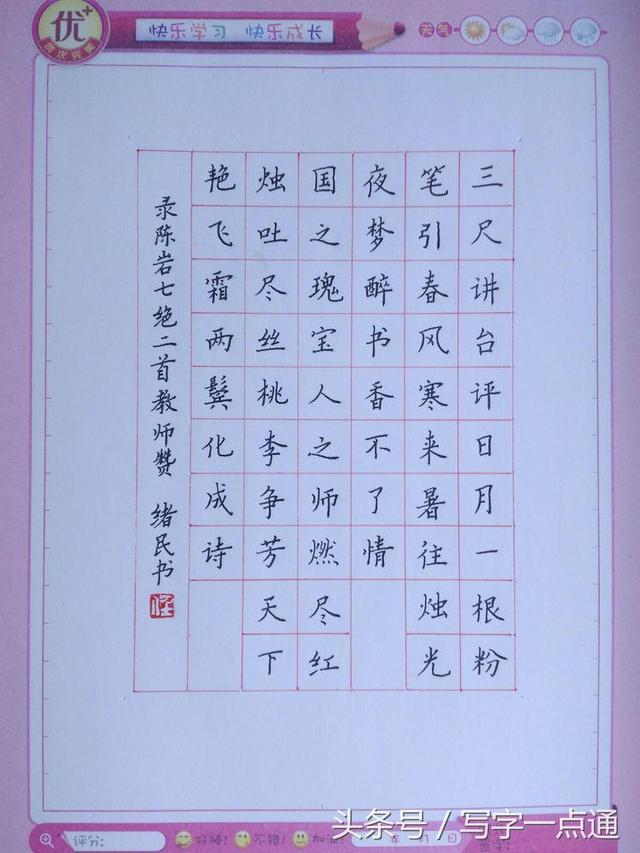 优+
快乐学习 快乐成长
天气
三尺讲台评日月一根粉
笔引春风寒来暑往烛光
夜梦醉书香不了情
国之瑰宝人之师燃尽红
烛吐尽丝桃李争芳天下
艳飞霜两鬓化成诗
录陈岩七绝二首教师赞 绪民书
评分: 好棒! 不错! 加油! 年 月 日
头条号 / 写字一点通